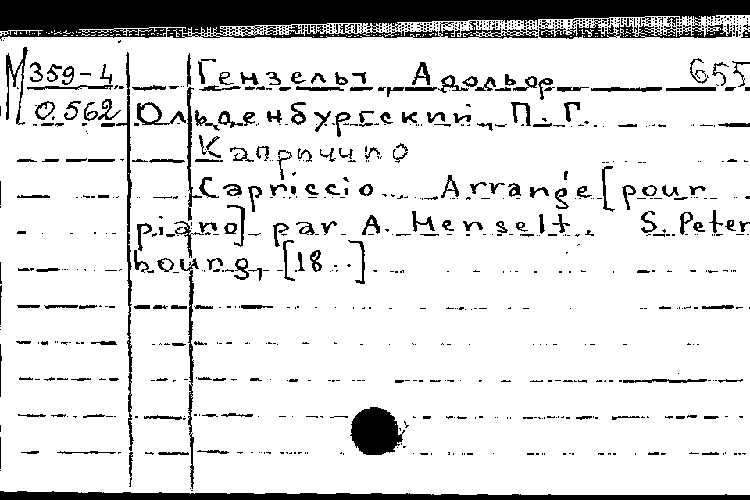 М359-4 Гензельт, Адольф 655
0.562 Ольденбургский, П. Г.
Каприччио
Capriccio. Arrangé [pour
piano] par A. Henselt. S. Peter
bourg, [18..]